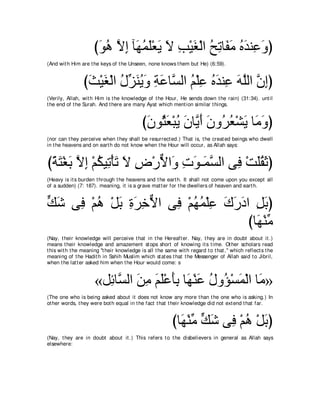 (وَعِندَهُ مَفَاتِحُ الْغَيْبِ لاَ يَعْلَمُهَآ إِلاَّ هُوَ)
(And with Him are the keys of the Unseen, none knows them but He) (6:59).
(إِنَّ اللَّهَ عِندَهُ عِلْمُ السَّاعَةِ وَيُنَزِّلُ الْغَيْثَ)
(Verily, Allah, with Him is the knowledge of the Hour, He sends down the rain) (31:34). until
the end of the Surah. And there are many Ayat which mention similar things.
(وَمَا يَشْعُرُونَ أَيَّانَ يُبْعَثُونَ)
(nor can they perceive when they shall be resurrected.) That is, the created beings who dwell
in the heavens and on earth do not know when the Hour will occur, as Allah says:
(ثَقُلَتْ فِى السَّمَـوَتِ وَالاٌّرْضِ لاَ تَأْتِيكُمْ إِلاَّ بَغْتَةً)
(Heavy is its burden through the heavens and the earth. It shall not come upon you except all
of a sudden) (7: 187). meaning, it is a grave matter for the dwellers of heaven and earth.
(بَلِ ادَرَكَ عِلْمُهُمْ فِى الاٌّخِرَةِ بَلْ هُمْ فِى شَكٍّ
مِّنْهَا)
(Nay, their knowledge will perceive that in the Hereafter. Nay, they are in doubt about it.)
means their knowledge and amazement stops short of knowing its time. Other scholars read
this with the meaning "their knowledge is all the same with regard to that," which reflects the
meaning of the Hadith in Sahih Muslim which states that the Messenger of Allah said to Jibril,
when the latter asked him when the Hour would come: s
«مَا الْمَسْؤُولُ عَنْهَا بِأَعْلَمَ مِنَ السَّائِلِ»
(The one who is being asked about it does not know any more than the one who is asking.) In
other words, they were both equal in the fact that their knowledge did not extend that far.
(بَلْ هُمْ فِى شَكٍّ مِّنْهَا)
(Nay, they are in doubt about it.) This refers to the disbelievers in general as Allah says
elsewhere: